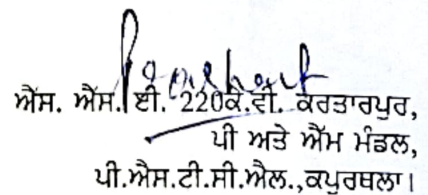 ਐੱਸ. ਐੱਸ. ਈ. 220ਕੇ.ਵੀ. ਕਰਤਾਰਪੁਰ,
ਪੀ ਅਤੇ ਐੱਮ ਮੰਡਲ,
ਪੀ.ਐਸ.ਟੀ.ਸੀ.ਐਲ.,ਕਪੂਰਥਲਾ।